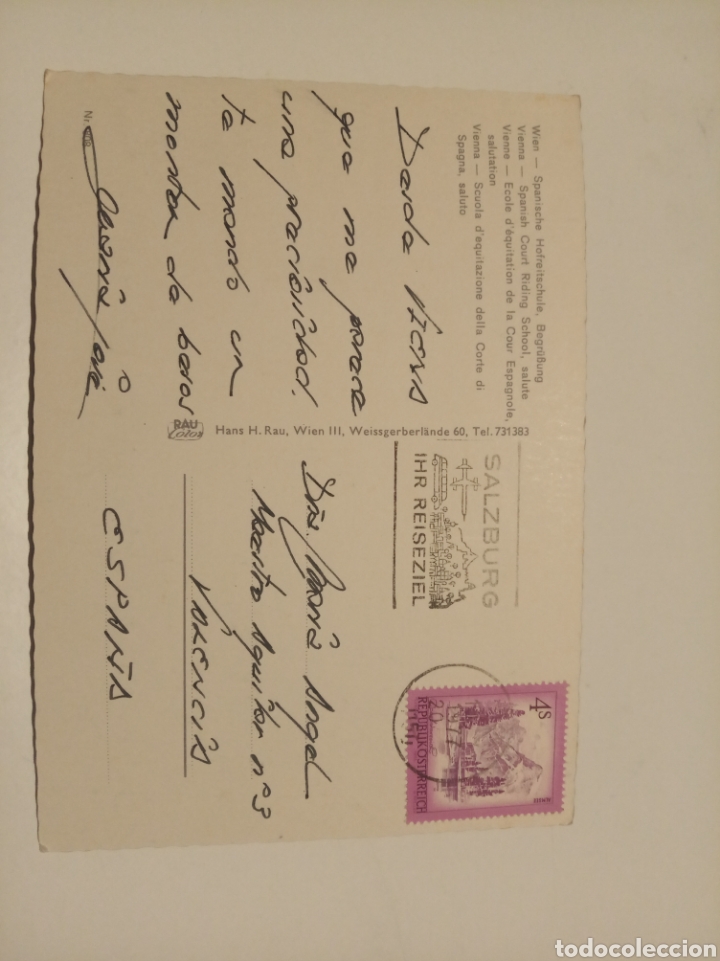 Wien — Spanische Hofreitschule, Begrüßung
Vienna — Spanish Court Riding School, salute
Vienne — Ecole d'équitation de la Cour Espagnole,
salutation
Vienna — Scuola d'equitazione della Corte di
Spagna, saluto
Desde Viena
que me parece
una preciosidad.
te mando un
monton de besos
María José
Nr.
RAU
Color
Hans H. Rau, Wien III, Weissgerberlände 60, Tel. 731383
SALZBURG
IHR REISEZIEL
4S
REPUBLIK ÖSTERREICH
20
1977
María Angel
Maestro Aguilar nº 3
VALENCIA
ESPAÑA
todocoleccion